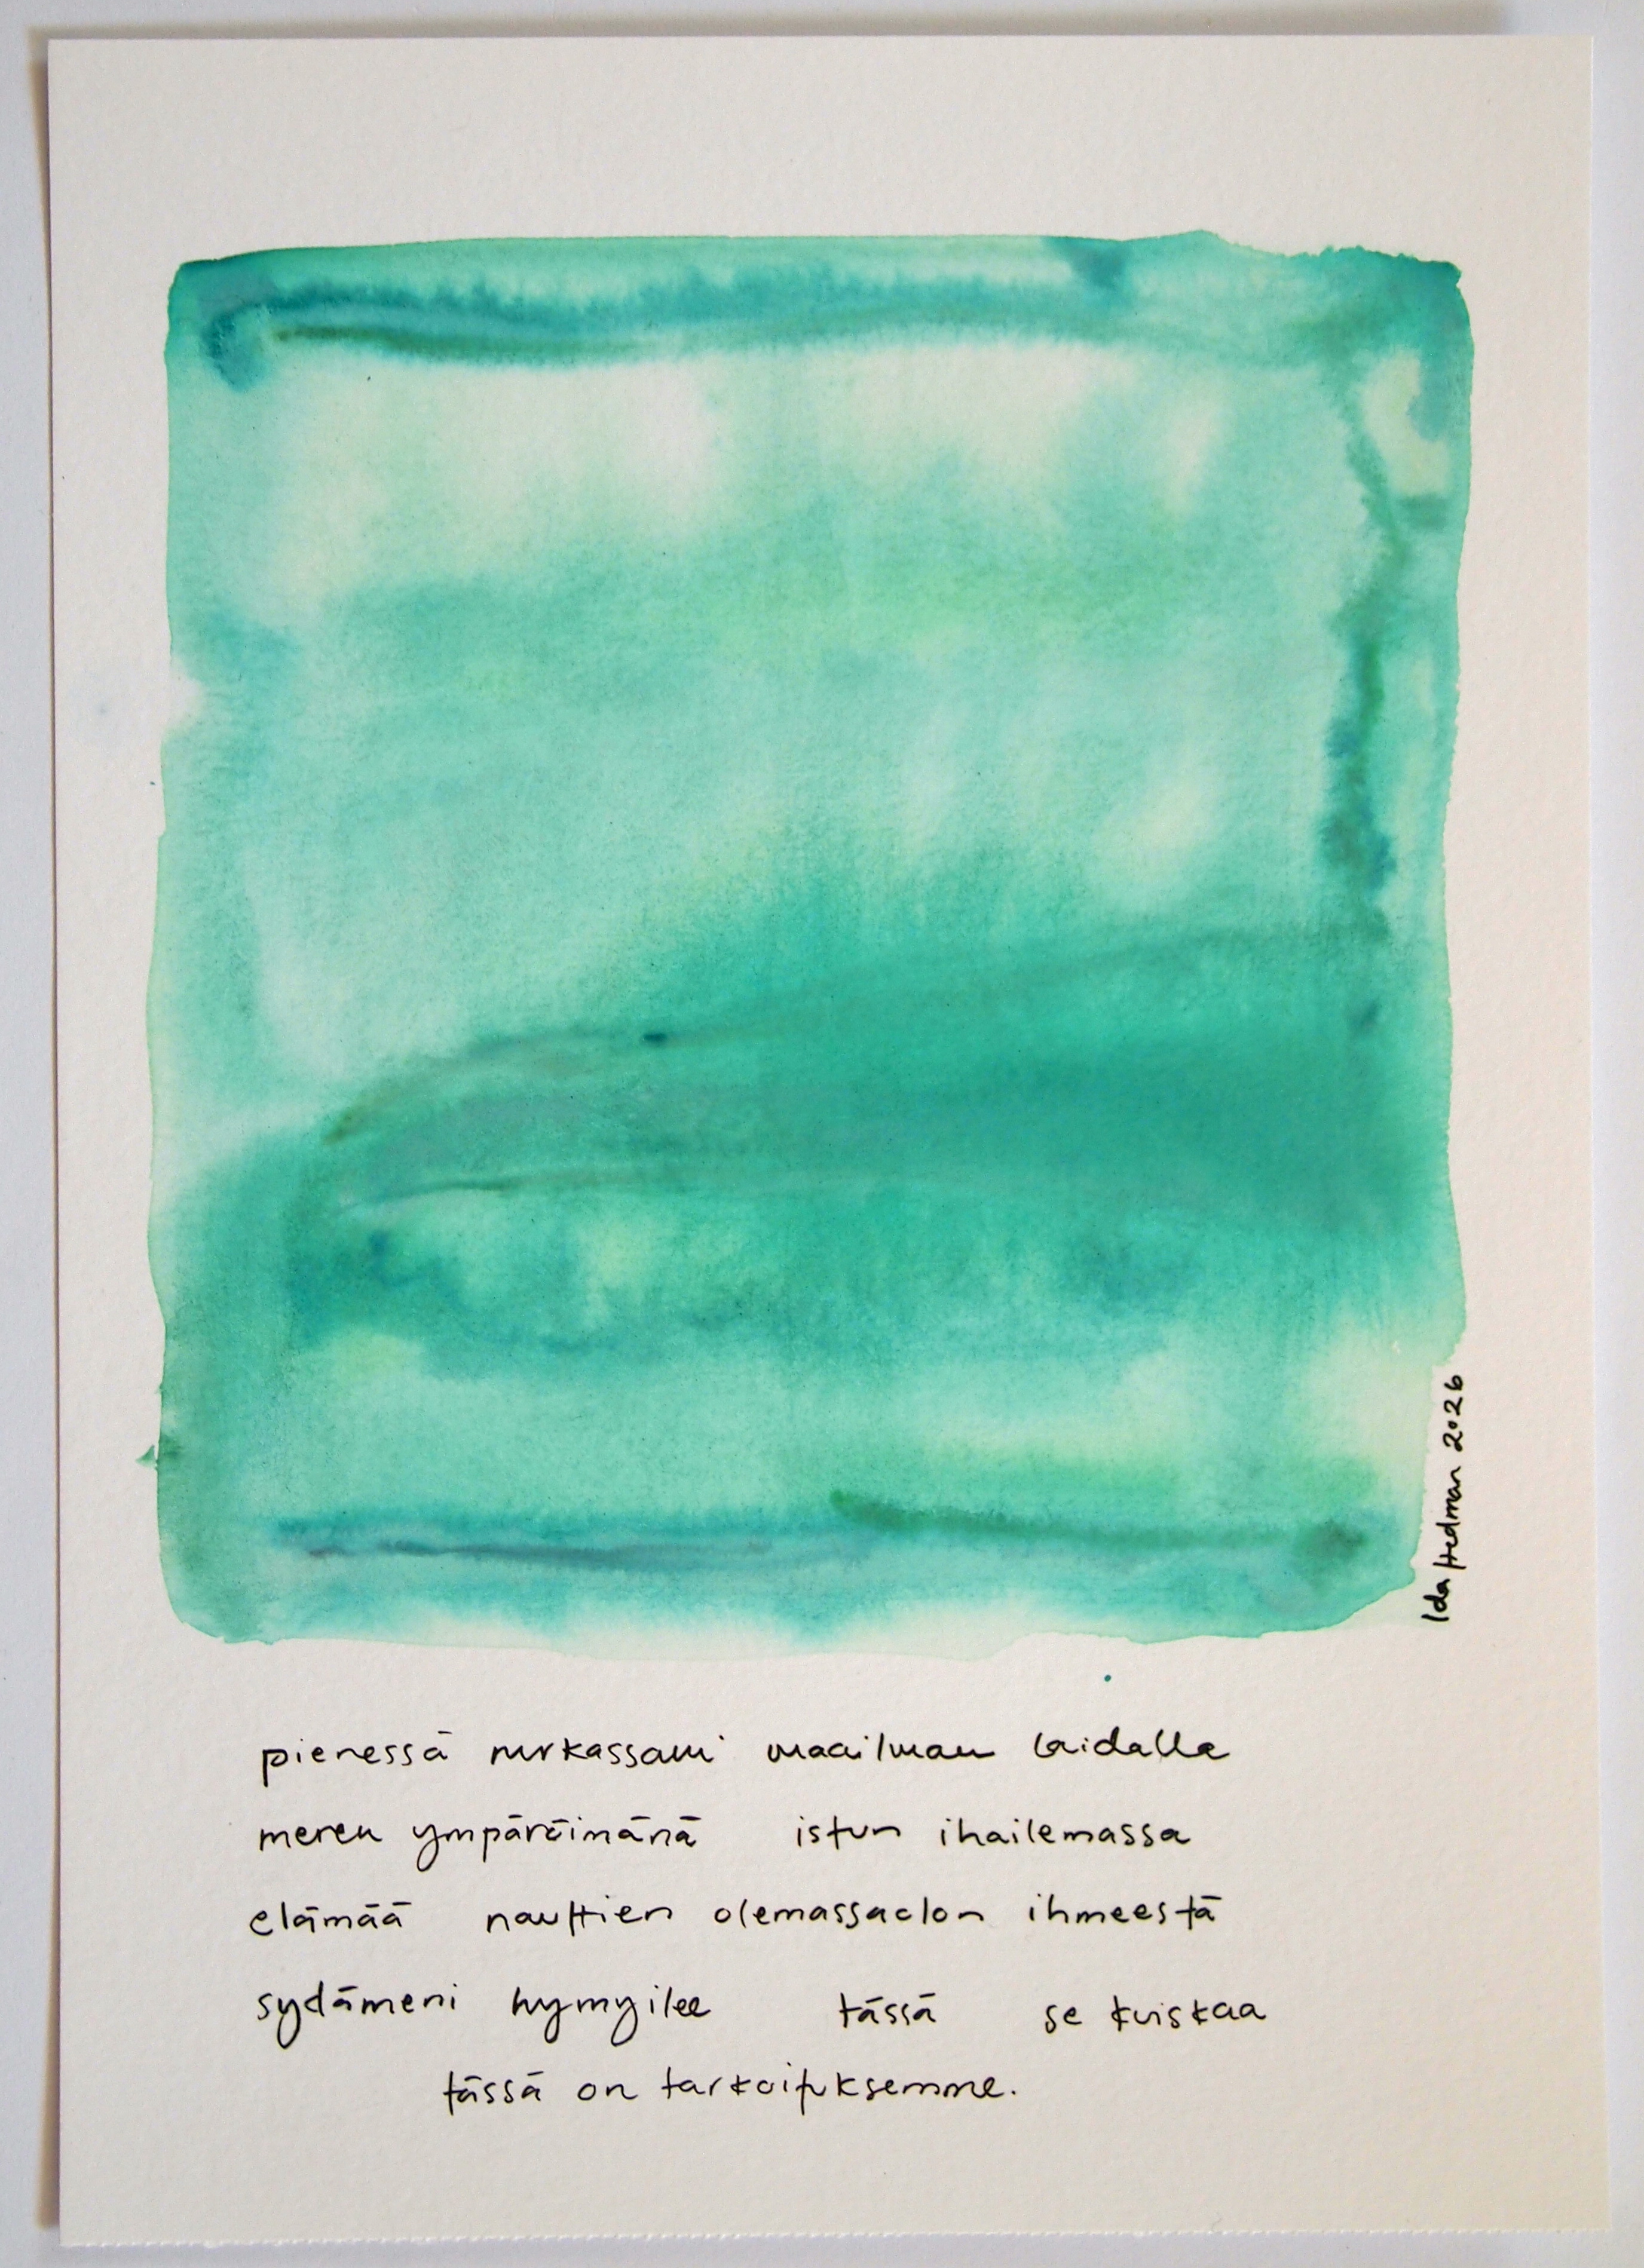 Ida Hedman 2026
pienessä nurkassani maailman laidalla
meren ympäröimänä istun ihailemassa
elämää nauttien olemassaolon ihmeestä
sydämeni hymyilee tässä se kuiskaa
tässä on tarkoituksemme.